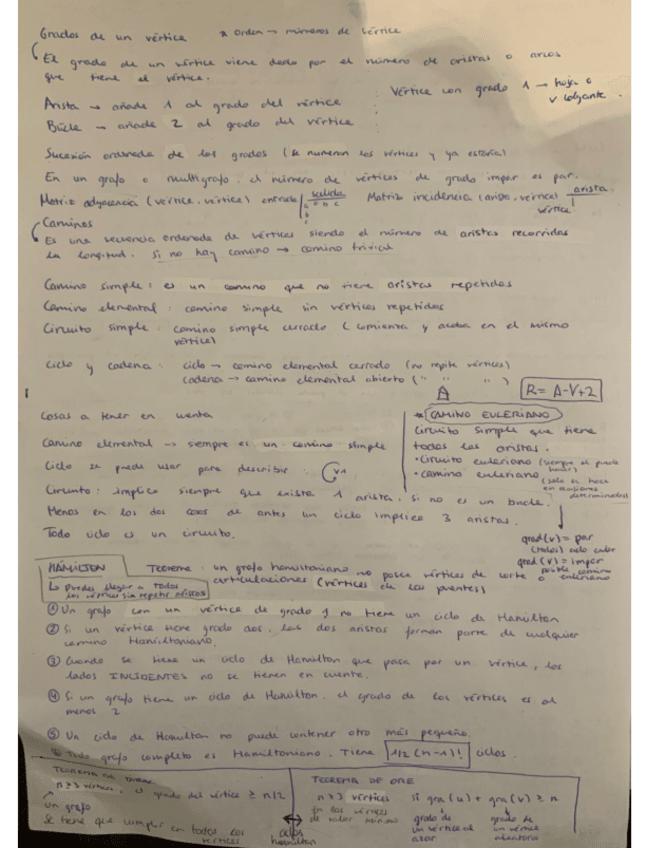 Grados de un vértice * orden → números de vértice
El grado de un vértice viene dado por el número de aristas o arcos
que tiene el vértice.
Vértice con grado 1 → hoja o
v colgante.
Arista → añade 1 al grado del vértice
Bucle → añade 2 al grado del vértice
Sucesión ordenada de los grados (se numeran los vértices y ya estaría)
En un grafo o multigrafo, el número de vértices de grado impar es par.
Matriz adyacencia (vértice, vértice) entrada salida a b c Matriz incidencia (arista, vértice) arista
vértice
a
b
c
Caminos
Es una secuencia ordenada de vértices siendo el número de aristas recorridas
la longitud. Si no hay camino → camino trivial
Camino simple: es un camino que no tiene aristas repetidas
Camino elemental: camino simple sin vértices repetidos
Circuito simple: camino simple cerrado (comienza y acaba en el mismo
vértice)
Ciclo y cadena: ciclo → camino elemental cerrado (no repite vértices)
cadena → camino elemental abierto (" " ")
R = A-V+2
Cosas a tener en cuenta
* CAMINO EULERIANO
Circuito simple que tiene
todas las aristas.
• Circuito euleriano (siempre se puede
hacer)
• camino euleriano (solo se hace
en ocasiones
determinadas)
Camino elemental → siempre es un camino simple
Ciclo se puede usar para describir: v1
Circuito: implica siempre que exista 1 arista, si no es un bucle.
Menos en los dos casos de antes un ciclo implica 3 aristas.
Todo ciclo es un circuito.
grad(v) = par
(todos) ciclo euler
grad(v) = impar
posible camino
euleriano
HAMILTON
Teorema: un grafo hamiltoniano no posee vértices de corte o
articulaciones (vértices de los puentes)
Lo puedes llegar a todos
los vértices sin repetir aristas
① Un grafo con un vértice de grado 1 no tiene un ciclo de Hamilton
② Si un vértice tiene grado dos, las dos aristas forman parte de cualquier
camino Hamiltoniano.
③ Cuando se tiene un ciclo de Hamilton que pasa por un vértice, los
lados INCIDENTES no se tienen en cuenta.
④ Si un grafo tiene un ciclo de Hamilton, el grado de los vértices es al
menos 2
⑤ Un ciclo de Hamilton no puede contener otro más pequeño.
⑥ Todo grafo completo es Hamiltoniano. Tiene 1/2 (n-1)! ciclos.
TEOREMA DE DIRAC
n ≥ 3 vértices, grado del vértice ≥ n/2
un grafo
Se tiene que cumplir en todos los
vértices
ciclos
hamilton
TEOREMA DE ORE
n ≥ 3 vértices si gra(u) + gra(v) ≥ n
En los vértices
de valor mínimo
grado de
un vértice al
azar
grado de
un vértice
aleatorio